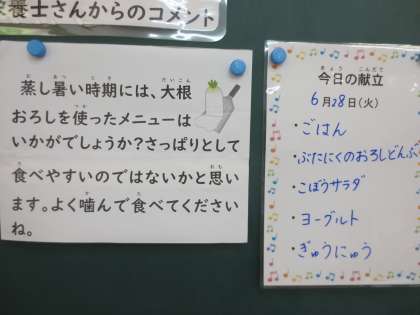 養士さんからのコメント
蒸し暑い時期には、大根
おろしを使ったメニューは
いかがでしょうか？さっぱりとして
食べやすいのではないかと思い
ます。よく噛んで食べてください
ね。
今日の献立
6月28日(火)
・ごはん
・ぶたにくのおろしどんぶ
・ごぼうサラダ
・ヨーグルト
・ぎゅうにゅう